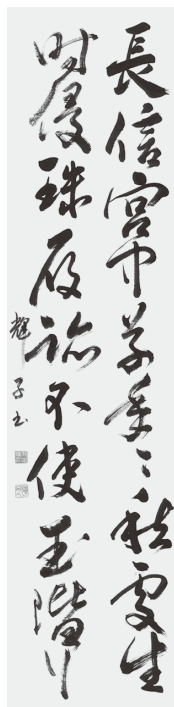 長信宮中草年々愁處生
時侵珠履跡不使玉階行
輝子书